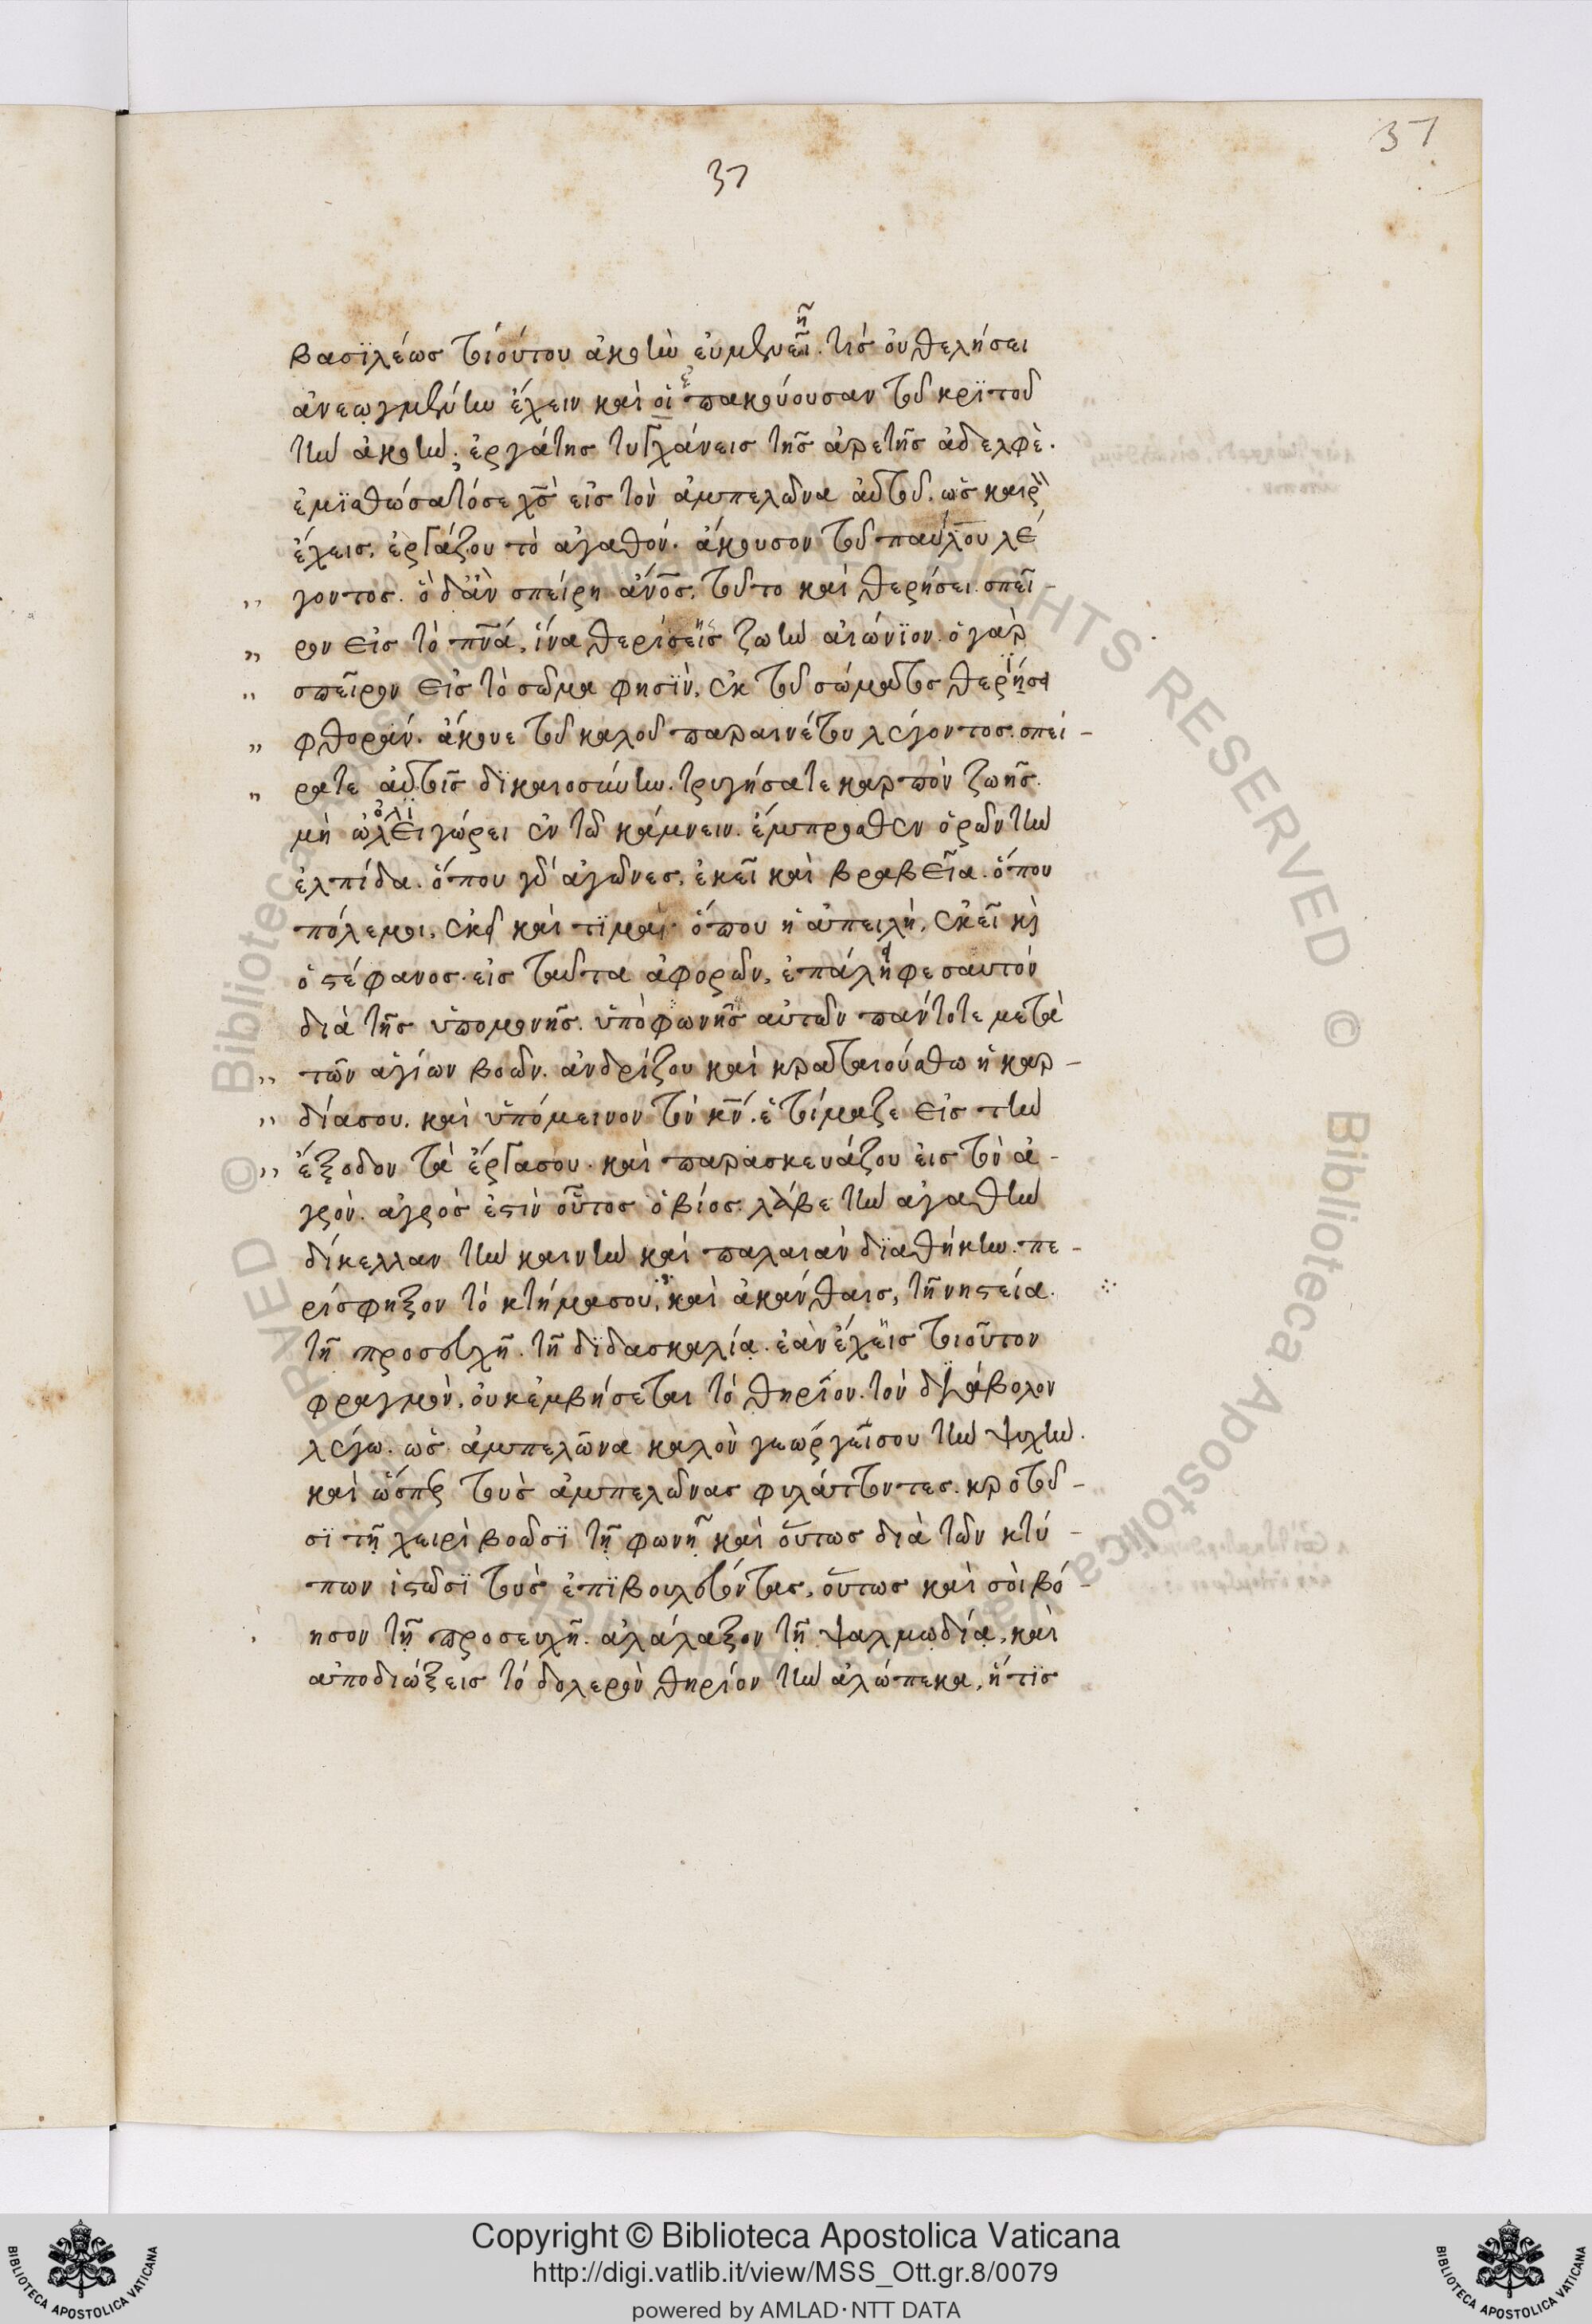 37
37
βασϊλέωσ τιούτου ἀκοὴν εὐμενεῖ. τίσ οὐ θελήσει
ῆ
ἀνεῳγμένην ἔχειν καὶ οἱ ἐπακούουσαν τοῦ κρϊτοῦ
τὴν ἀκοὴν. ἐργάτησ τυγχάνεισ τῆσ ἀρετῆσ ἀδελφὲ.
ἐμϊσθώσατόσε χσ̄ εἰσ τὸν ἀμπελῶνα αὐτοῦ. ὡσ καιρὸν
ἔχεισ, ἐργάζου τὸ ἀγαθόν. ἄκουσον τοῦ παύλου λέ
γοντοσ. ὃ δἂν σπείρῃ ἄνοσ̄, τοῦτο καὶ θερήσει. σπεῖ-
ρον εἰσ τὸ πνᾱ́, ἵνα θερίσεϊσ ζωὴν αἰώνϊον. ὁ γὰρ
σπεῖρον εἰσ τὸ σῶμα φησϊν, ἐκ τοῦ σώματοσ θερήσει
φθοράν. ἄκουε τοῦ καλοῦ παραινέτου λέγοντοσ. σπεί-
ρατε αὐτοῖσ δϊκαιοσύνην. τρυγήσατε καρπὸν ζωῆσ.
ὀλϊ
μὴ ὠλειγώρει ἐν τῶ κάμνειν. ἔμπροσθεν ὁρῶν τὴν
ἐλπίδα. ὅπου γὰρ ἀγῶνεσ, ἐκεῖ καὶ βραβεῖα. ὅπου
πόλεμοι, ἐκεῖ καὶ τϊμαὶ. ὅπου ἡ ἀπειλὴ, ἐκεῖ κὶ
ὁ στέφανοσ. εἰσ ταῦτα ἀφορῶν, ἐπάληφε σαυτόν
διὰ τῆσ ὑπομονῆσ. ὑπὸ φωνῆσ αὐτῶν πάντοτε μετὰ
τῶν ἁγίων βοῶν. ἀνδρίζου καὶ κραταιούσθω ἡ καρ-
δίασου. καὶ ὑπόμεινον τὸν κν̄. ἑτοίμαζε εἰσ τὴν
ἔξοδον τὰ ἔργασου. καὶ παρασκευάζου εἰσ τὸν ἀ-
γρόν. ἀγρόσ ἐστὶν οὗτοσ ὁ βίοσ. λάβε τὴν ἀγαθὴν
δίκελλαν τὴν καινὴν καὶ παλαιὰν δϊαθήκην. πε-
ρίσφηξον τὸ κτήμασου, καὶ ἀκάνθαισ, τῆ νηστεία.
τῆ προσευχῆ. τῆ δϊδασκαλίᾳ. ἐὰν ἔχεϊσ τιοῦτον
φραγμὸν, οὐκ ἐμβήσεται τὸ θηρίον. τὸν δϊάβολον
λέγω. ὡσ ἀμπελῶνα καλὸν γεώργεῖσου τὴν ψυχὴν.
καὶ ὥσπερ τοὺσ ἀμπελῶνασ φυλάττοντεσ. κροτοῦ-
σϊ τῇ χειρὶ βοῶσϊ τῇ φωνῇ καὶ οὕτωσ διὰ τῶν κτύ-
πων ἱστῶσϊ τοὺσ ἐπϊβουλεύοντασ, οὕτωσ καὶ σὺ βό-
ησον τῇ προσευχῇ. ἀλάλαξον τῇ ψαλμῳδίᾳ, καὶ
ἀποδιώξεισ τὸ δολερὸν θηρίον τὴν ἀλώπεκα, ἥτϊσ
Copyright © Biblioteca Apostolica Vaticana
http://digi.vatlib.it/view/MSS_Ott.gr.8/0079
powered by AMLAD·NTT DATA